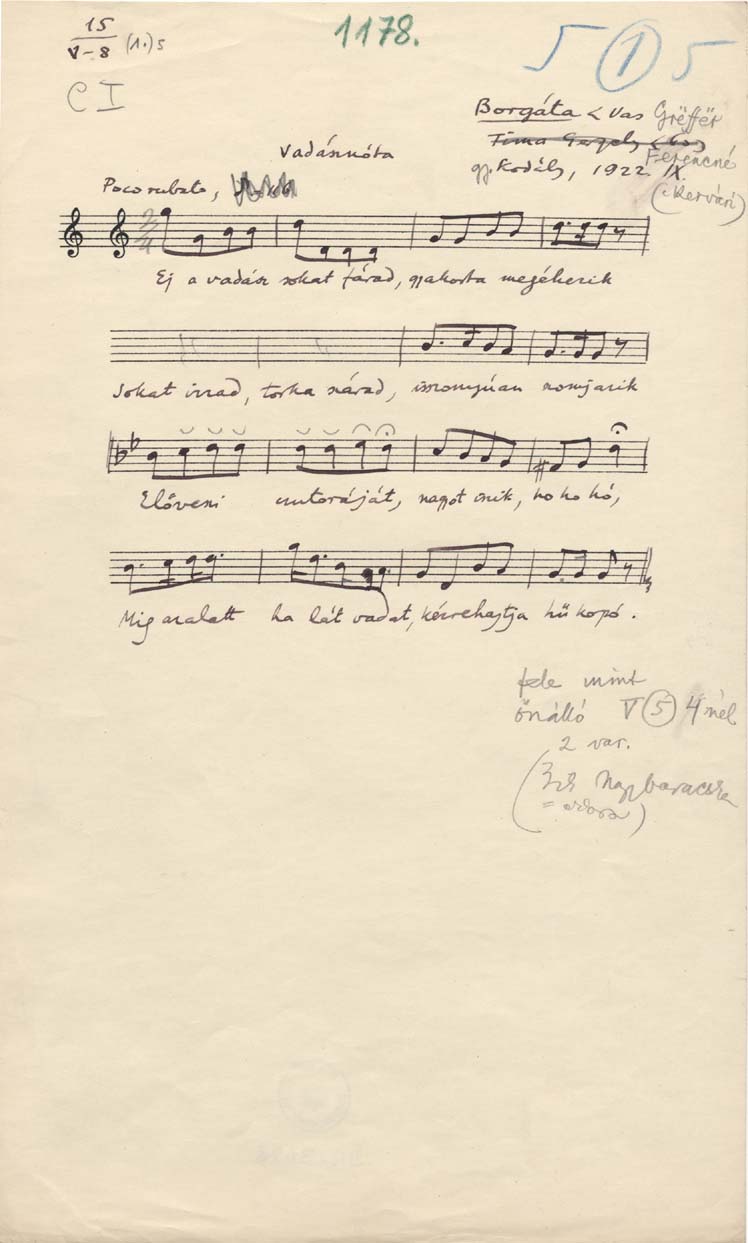 15
V-8 (1.) 5
1178.
5 1 5
C I
Borgáta < Vas Grëffër
Tima Gergely (60)
Ferencné
gy. Kodály, 1922. IX.
Vadásnóta
Poco rubato,
2/4
Ej a vadász sokat fárad, gyakorta megéhezik
Sokat izzad, torka szárad, iszonyúan szomjazik
Előveszi csutoráját, nagyot iszik, ho ho hó,
Míg azalatt ha lát vadat, kézrehajtja hű kopó.
fele mint
önálló V 5 4 nél
2 var.
Nagybaracska